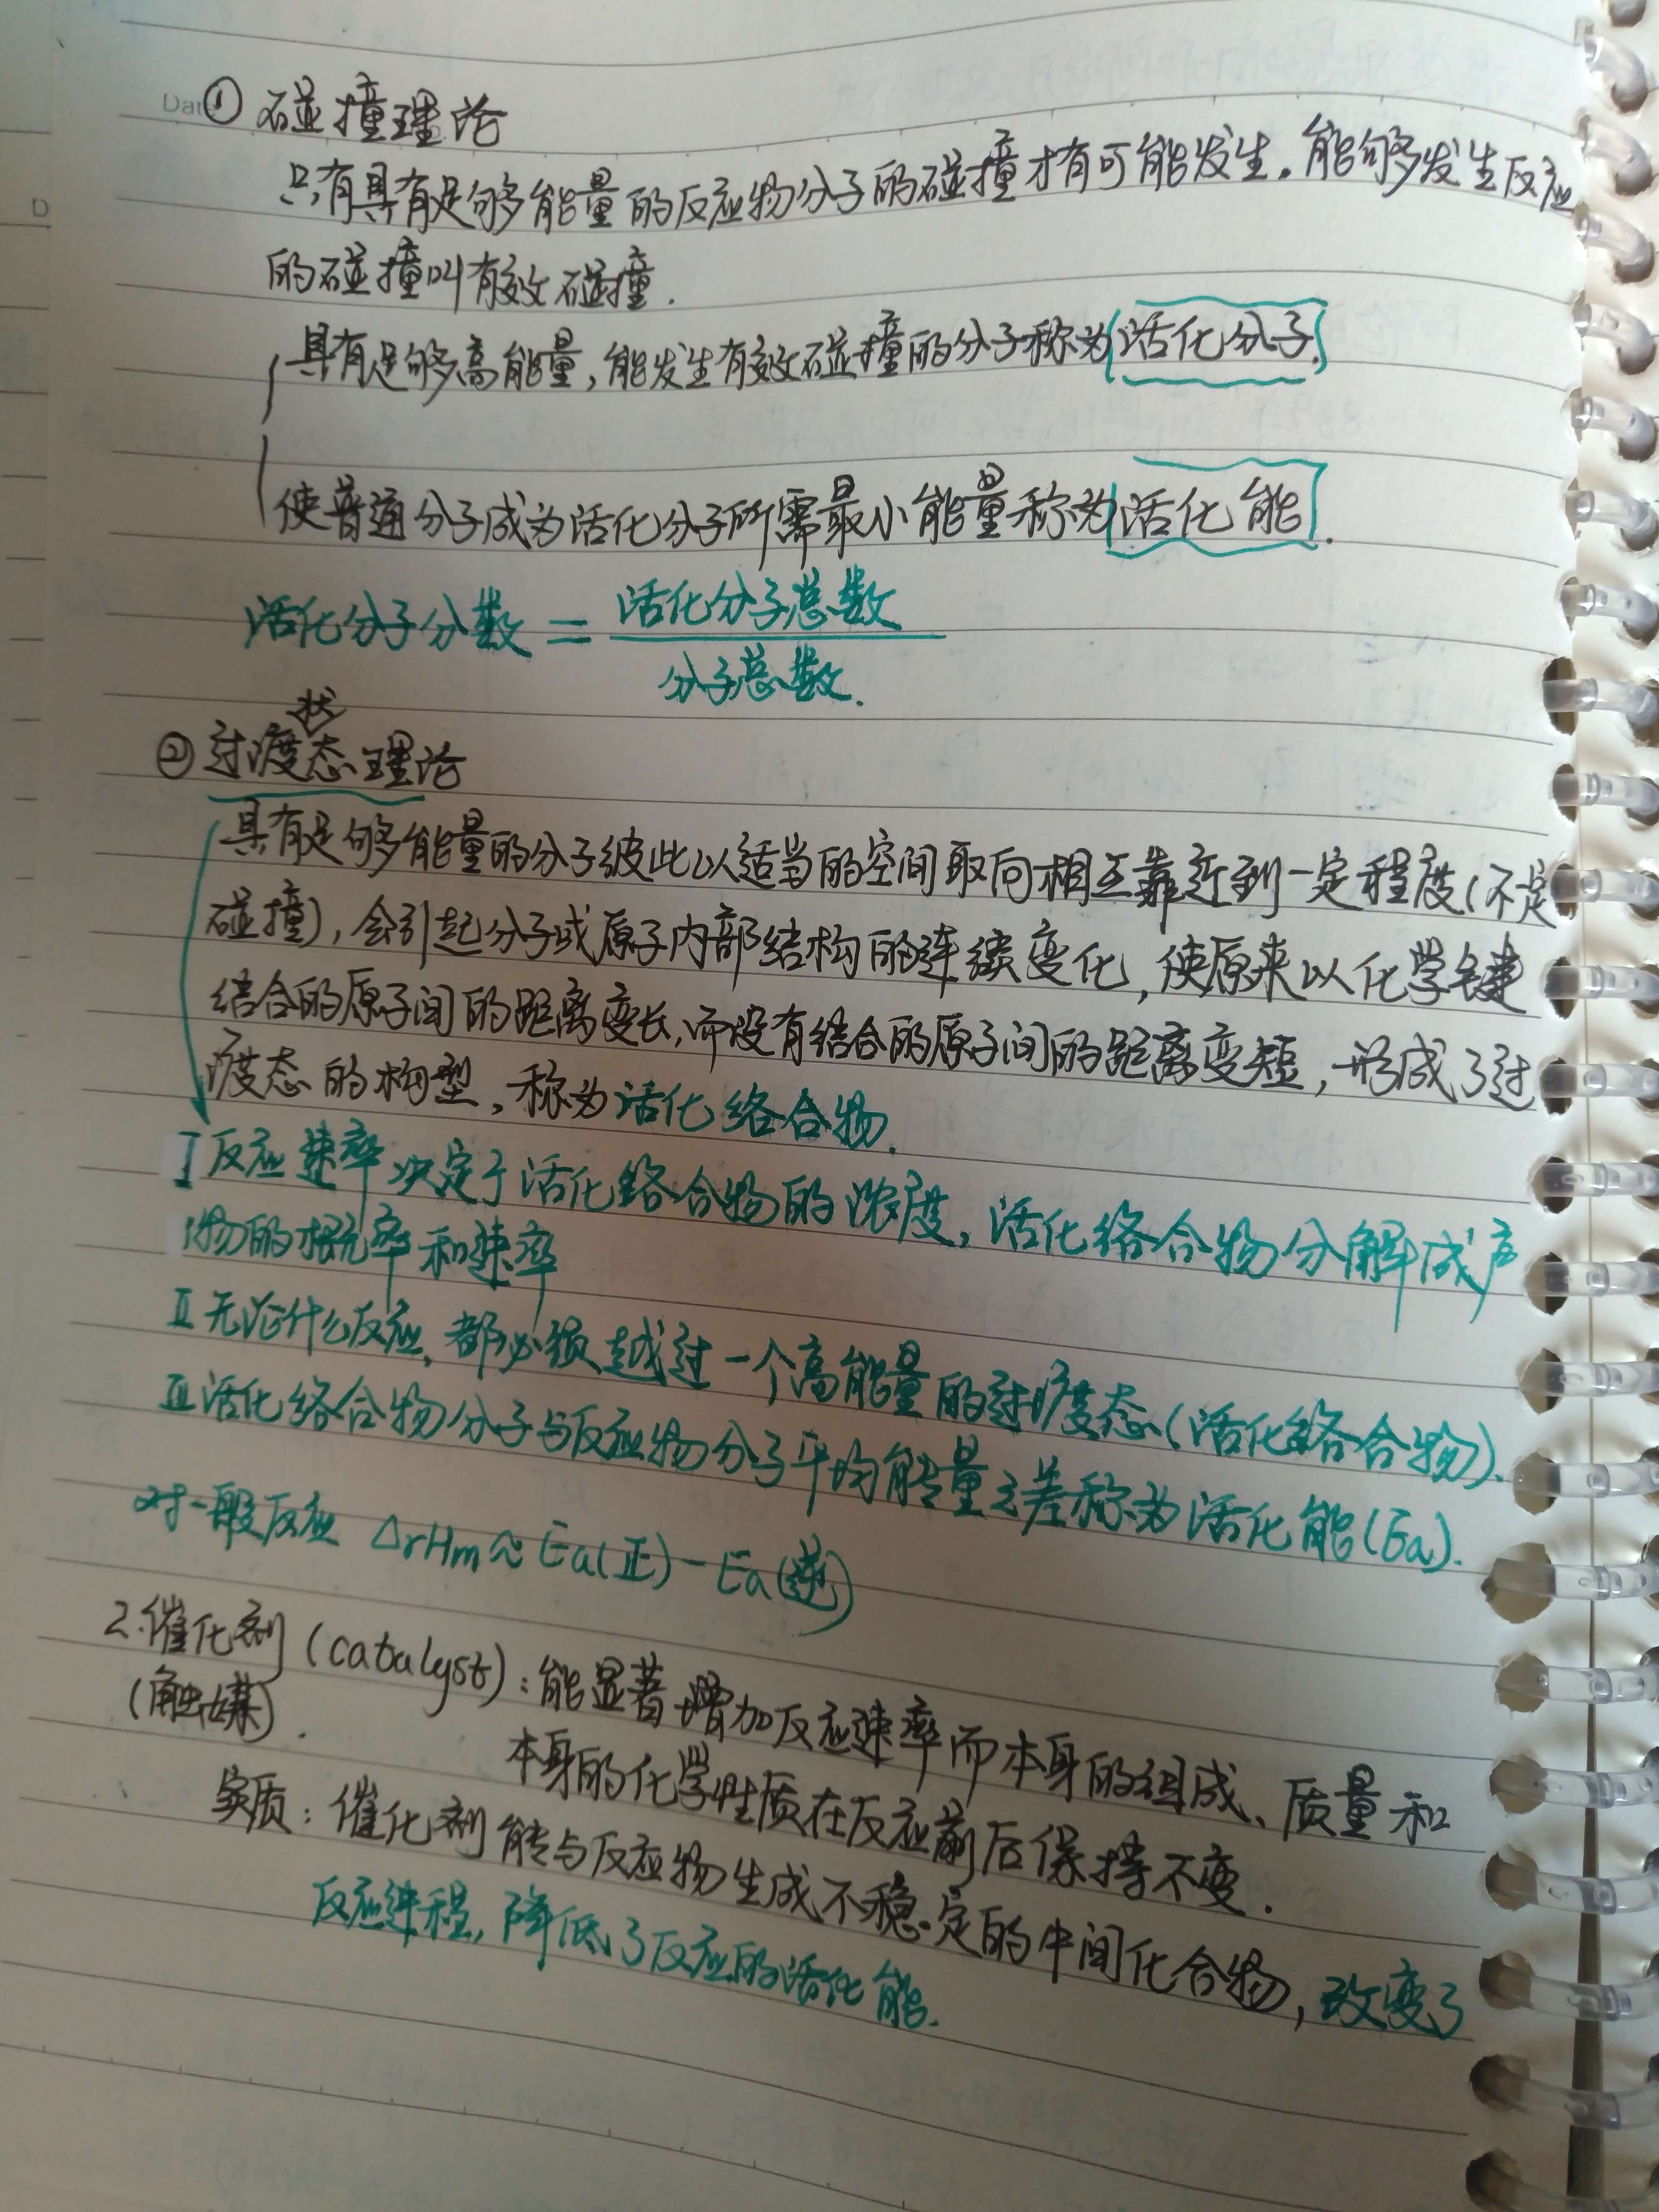 Dat
① 碰撞理论
只有具有足够能量的反应物分子的碰撞才有可能发生。能够发生反应
的碰撞叫有效碰撞.
具有足够高能量,能发生有效碰撞的分子称为活化分子.
使普通分子成为活化分子所需最小能量称为活化能.
活化分子分数 = 活化分子总数
分子总数.
状
② 过渡态理论
具有足够能量的分子彼此以适当的空间取向相互靠近到一定程度(不定
碰撞),会引起分子或原子内部结构的连续变化,使原来以化学键
结合的原子间的距离变长,而没有结合的原子间的距离变短,形成了过
渡态的构型,称为活化络合物.
Ⅰ反应速率决定于活化络合物的浓度,活化络合物分解成产
物的概率和速率
Ⅱ无论什么反应,都必须越过一个高能量的过渡态(活化络合物).
Ⅲ活化络合物分子与反应物分子平均能量之差称为活化能(Ea).
对一般反应 ΔrHm≈Ea(正)-Ea(逆)
2.催化剂(catalyst):能显著增加反应速率而本身的组成、质量和
(触媒).
本身的化学性质在反应前后保持不变.
实质:催化剂能与反应物生成不稳定的中间化合物,改变了
反应进程,降低了反应的活化能.
D